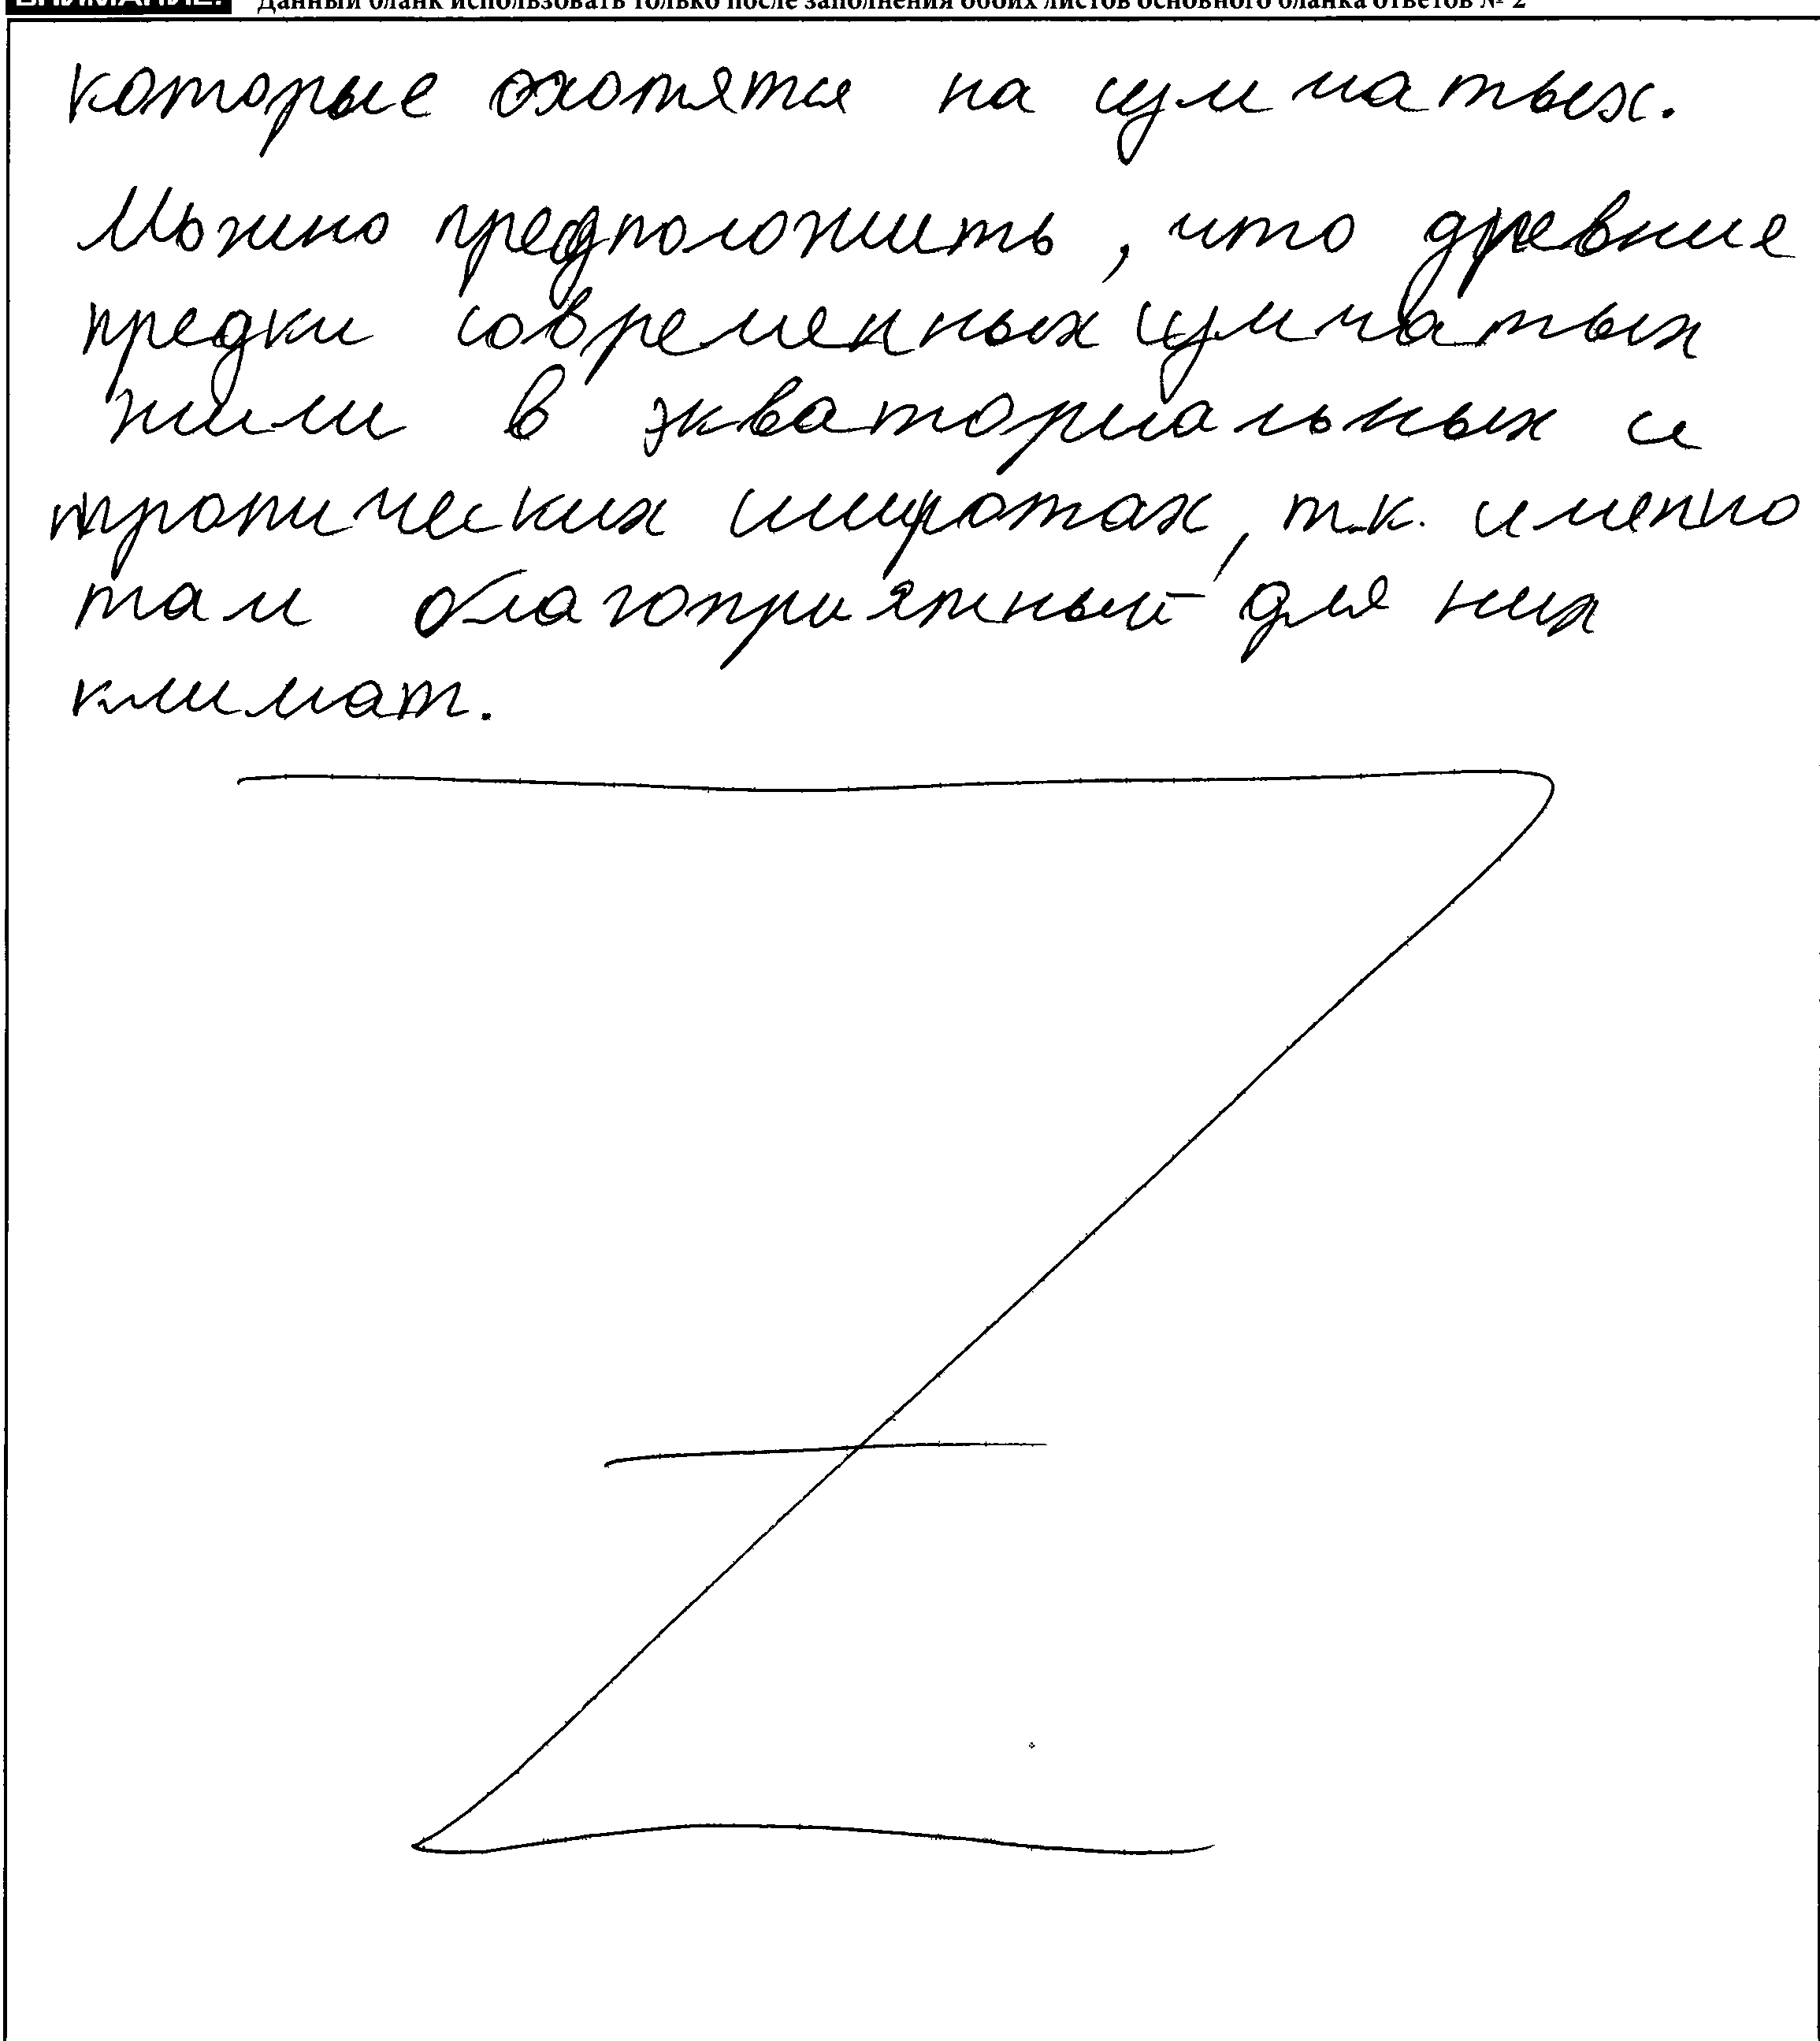 ВНИМАНИЕ! Данный бланк использовать только после заполнения обоих листов основного бланка ответов № 2
которые охотятся на сумчатых.
Можно предположить, что древние
предки современных сумчатых
жили в экваториальных и
тропических широтах, т.к. именно
там благоприятный для них
климат.